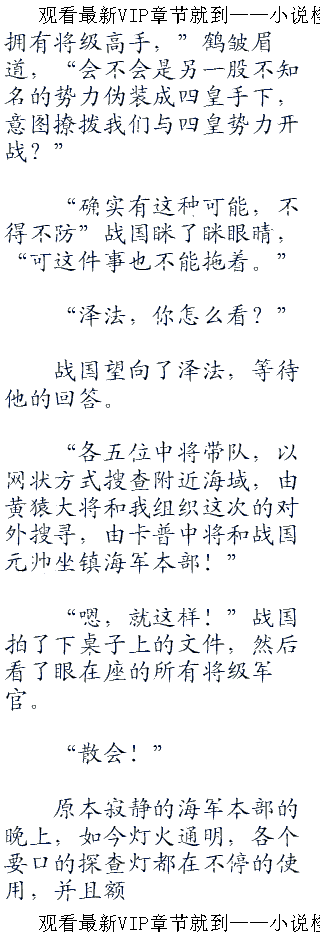 观看最新VIP章节就到——小说检
拥有将级高手，”鹤皱眉
道，“会不会是另一股不知
名的势力伪装成四皇手下，
意图撩拨我们与四皇势力开
战？”
“确实有这种可能，不
得不防”战国眯了眯眼睛，
“可这件事也不能拖着。”
“泽法，你怎么看？”
战国望向了泽法，等待
他的回答。
“各五位中将带队，以
网状方式搜查附近海域，由
黄猿大将和我组织这次的对
外搜寻，由卡普中将和战国
元帅坐镇海军本部！”
“嗯，就这样！”战国
拍了下桌子上的文件，然后
看了眼在座的所有将级军
官。
“散会！”
原本寂静的海军本部的
晚上，如今灯火通明，各个
要口的探查灯都在不停的使
用，并且额
观看最新VIP章节就到——小说检